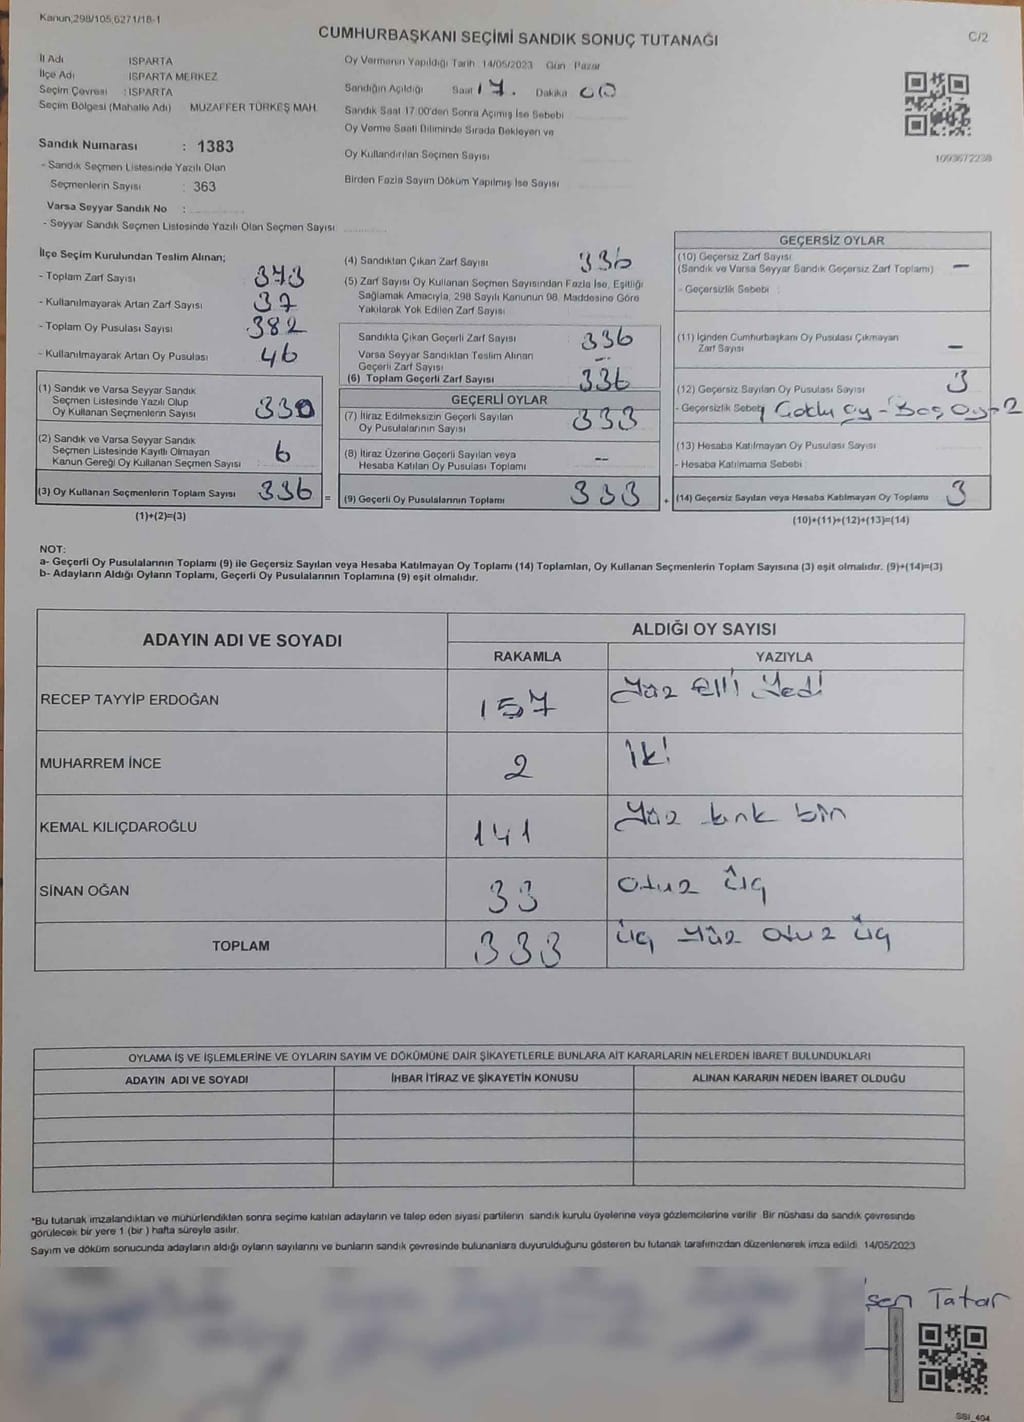 Kanun;298/105,6271/18-1
CUMHURBAŞKANI SEÇİMİ SANDIK SONUÇ TUTANAĞI
C/2
İl Adı ISPARTA
İlçe Adı ISPARTA MERKEZ
Seçim Çevresi : ISPARTA
Seçim Bölgesi (Mahalle Adı) MUZAFFER TÜRKEŞ MAH.
Sandık Numarası : 1383
- Sandık Seçmen Listesinde Yazılı Olan
Seçmenlerin Sayısı : 363
Varsa Seyyar Sandık No :
- Seyyar Sandık Seçmen Listesinde Yazılı Olan Seçmen Sayısı
Oy Vermenin Yapıldığı Tarih 14/05/2023 Gün : Pazar
Sandığın Açıldığı Saat 17. Dakika 00
Sandık Saat 17.00'den Sonra Açımış İse Sebebi
Oy Verme Saati Bitiminde Sırada Bekleyen ve
Oy Kullandırılan Seçmen Sayısı
Birden Fazla Sayım Döküm Yapılmış İse Sayısı
1093672238
İlçe Seçim Kurulundan Teslim Alınan;
- Toplam Zarf Sayısı 373
- Kullanılmayarak Artan Zarf Sayısı 37
- Toplam Oy Pusulası Sayısı 382
- Kullanılmayarak Artan Oy Pusulası 46
(1) Sandık ve Varsa Seyyar Sandık
Seçmen Listesinde Yazılı Olup
Oy Kullanan Seçmenlerin Sayısı 330
(2) Sandık ve Varsa Seyyar Sandık
Seçmen Listesinde Kayıtlı Olmayan
Kanun Gereği Oy Kullanan Seçmen Sayısı 6
(3) Oy Kullanan Seçmenlerin Toplam Sayısı 336 =
(1)+(2)=(3)
(4) Sandıktan Çıkan Zarf Sayısı 336
(5) Zarf Sayısı Oy Kullanan Seçmen Sayısından Fazla İse, Eşitliği
Sağlamak Amacıyla, 298 Sayılı Kanunun 98. Maddesine Göre
Yakılarak Yok Edilen Zarf Sayısı
Sandıkta Çıkan Geçerli Zarf Sayısı 336
Varsa Seyyar Sandıktan Teslim Alınan
Geçerli Zarf Sayısı –
(6) Toplam Geçerli Zarf Sayısı 336
GEÇERLİ OYLAR
(7) İtiraz Edilmeksizin Geçerli Sayılan
Oy Pusulalarının Sayısı 333
(8) İtiraz Üzerine Geçerli Sayılan veya
Hesaba Katılan Oy Pusulası Toplamı --
(9) Geçerli Oy Pusulalarının Toplamı 333 +
GEÇERSİZ OYLAR
(10) Geçersiz Zarf Sayısı
(Sandık ve Varsa Seyyar Sandık Geçersiz Zarf Toplamı) –
- Geçersizlik Sebebi :
(11) İçinden Cumhurbaşkanı Oy Pusulası Çıkmayan
Zarf Sayısı –
(12) Geçersiz Sayılan Oy Pusulası Sayısı 3
- Geçersizlik Sebebi Çoklu oy - Boş Oy-2
(13) Hesaba Katılmayan Oy Pusulası Sayısı
- Hesaba Katılmama Sebebi
(14) Geçersiz Sayılan veya Hesaba Katılmayan Oy Toplamı 3
(10)+(11)+(12)+(13)=(14)
NOT:
a- Geçerli Oy Pusulalarının Toplamı (9) ile Geçersiz Sayılan veya Hesaba Katılmayan Oy Toplamı (14) Toplamları, Oy Kullanan Seçmenlerin Toplam Sayısına (3) eşit olmalıdır. (9)+(14)=(3)
b- Adayların Aldığı Oyların Toplamı, Geçerli Oy Pusulalarının Toplamına (9) eşit olmalıdır.
ADAYIN ADI VE SOYADI
ALDIĞI OY SAYISI
RAKAMLA YAZIYLA
RECEP TAYYİP ERDOĞAN 157 Yüz Elli Yedi
MUHARREM İNCE 2 iki
KEMAL KILIÇDAROĞLU 141 Yüz kırk bin
SİNAN OĞAN 33 otuz üç
TOPLAM 333 üç yüz otuz üç
OYLAMA İŞ VE İŞLEMLERİNE VE OYLARIN SAYIM VE DÖKÜMÜNE DAİR ŞİKAYETLERLE BUNLARA AİT KARARLARIN NELERDEN İBARET BULUNDUKLARI
ADAYIN ADI VE SOYADI İHBAR İTİRAZ VE ŞİKAYETİN KONUSU ALINAN KARARIN NEDEN İBARET OLDUĞU
*Bu tutanak imzalandıktan ve mühürlendikten sonra seçime katılan adayların ve talep eden siyasi partilerin sandık kurulu üyelerine veya gözlemcilerine verilir. Bir nüshası da sandık çevresinde
görülecek bir yere 1 (bir ) hafta süreyle asılır.
Sayım ve döküm sonucunda adayların aldığı oyların sayılarını ve bunların sandık çevresinde bulunanlara duyurulduğunu gösteren bu tutanak tarafımızdan düzenlenerek imza edildi. 14/05/2023
şen Tatar
SBI_404